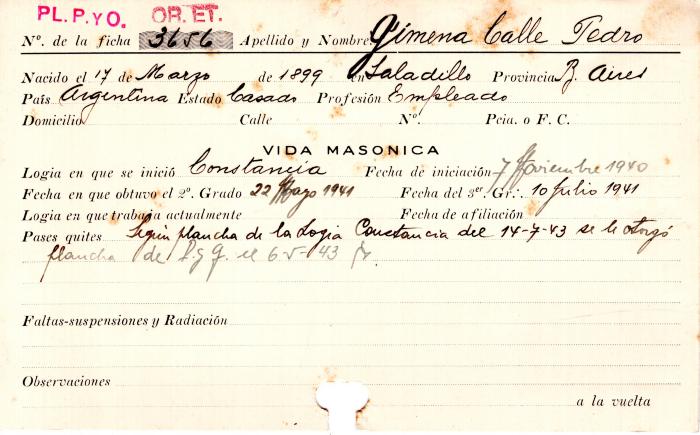 PL. P. y O. OR. ET.
Nº. de la ficha 3656 Apellido y Nombre Gimena Calle Pedro
Nacido el 17 de Marzo de 1899 en Saladillo Provincia B. Aires
País Argentina Estado Casado Profesión Empleado
Domicilio Calle Nº. Pcia. o F. C.
VIDA MASONICA
Logia en que se inició Constancia Fecha de iniciación 7 Noviembre 1940
Fecha en que obtuvo el 2º. Grado 22 Mayo 1941 Fecha del 3er. Gr∴. 10 Julio 1941
Logia en que trabaja actualmente Fecha de afiliación
Pases quites Según plancha de la Logia Constancia del 14-7-43 se le otorgó
plancha de P. y Q. el 6-5-43
Faltas-suspensiones y Radiación
Observaciones
a la vuelta